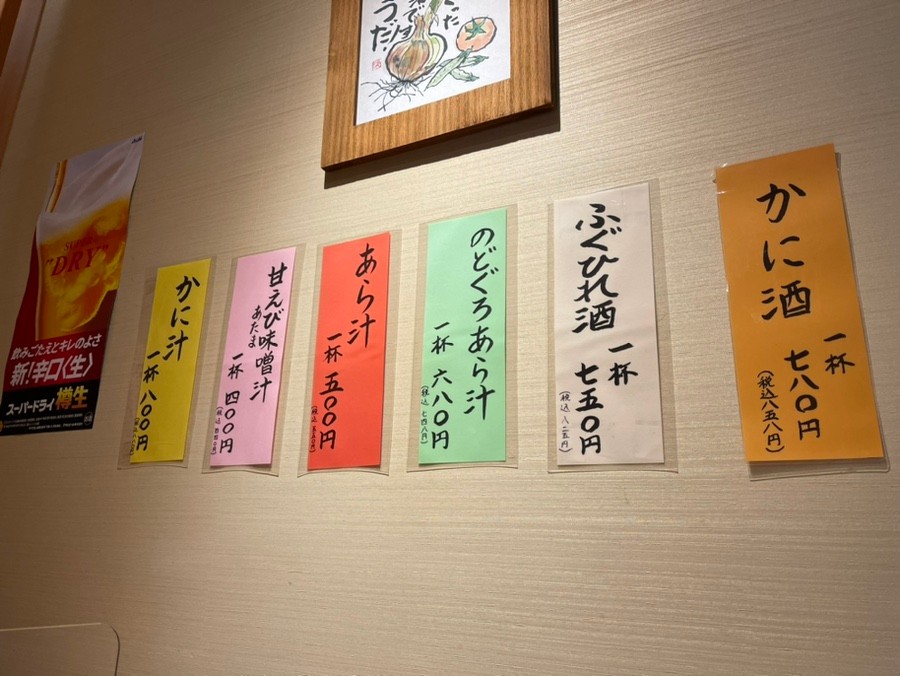 った
です
うだ!
かに酒
一杯
七八〇円
(税込八五八円)
ふぐひれ酒
一杯
七五〇円
(税込 八二五円)
のどぐろあら汁
一杯 六八〇円
(税込 七四八円)
あら汁
一杯 五〇〇円
(税込 五五〇円)
甘えび味噌汁
あたま
一杯 四〇〇円
(税込 四四〇円)
かに汁
一杯 八〇〇円
SUPER
"DRY"
飲みごたえとキレのよさ
新!辛口〈生〉
スーパードライ 樽生